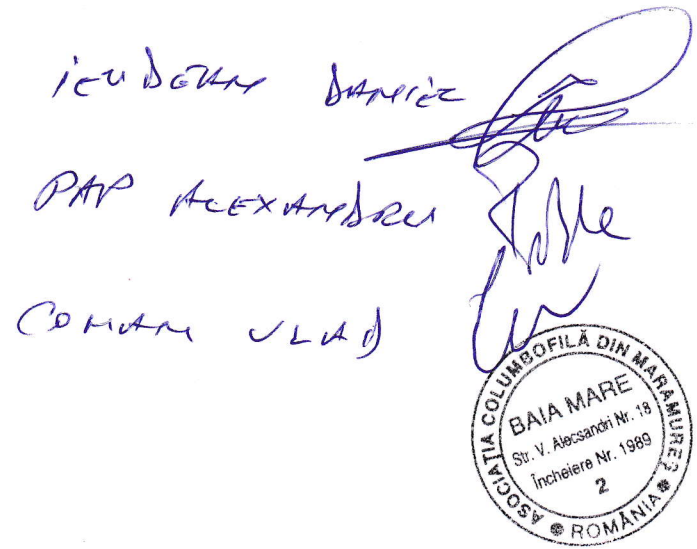 IEUDEAN DANIEL
PAP ALEXANDRU
COMAN VLAD
ASOCIAȚIA COLUMBOFILĂ DIN MARAMUREȘ
BAIA MARE
Str. V. Alecsandri Nr. 18
Încheiere Nr. 1989
2
ROMÂNIA